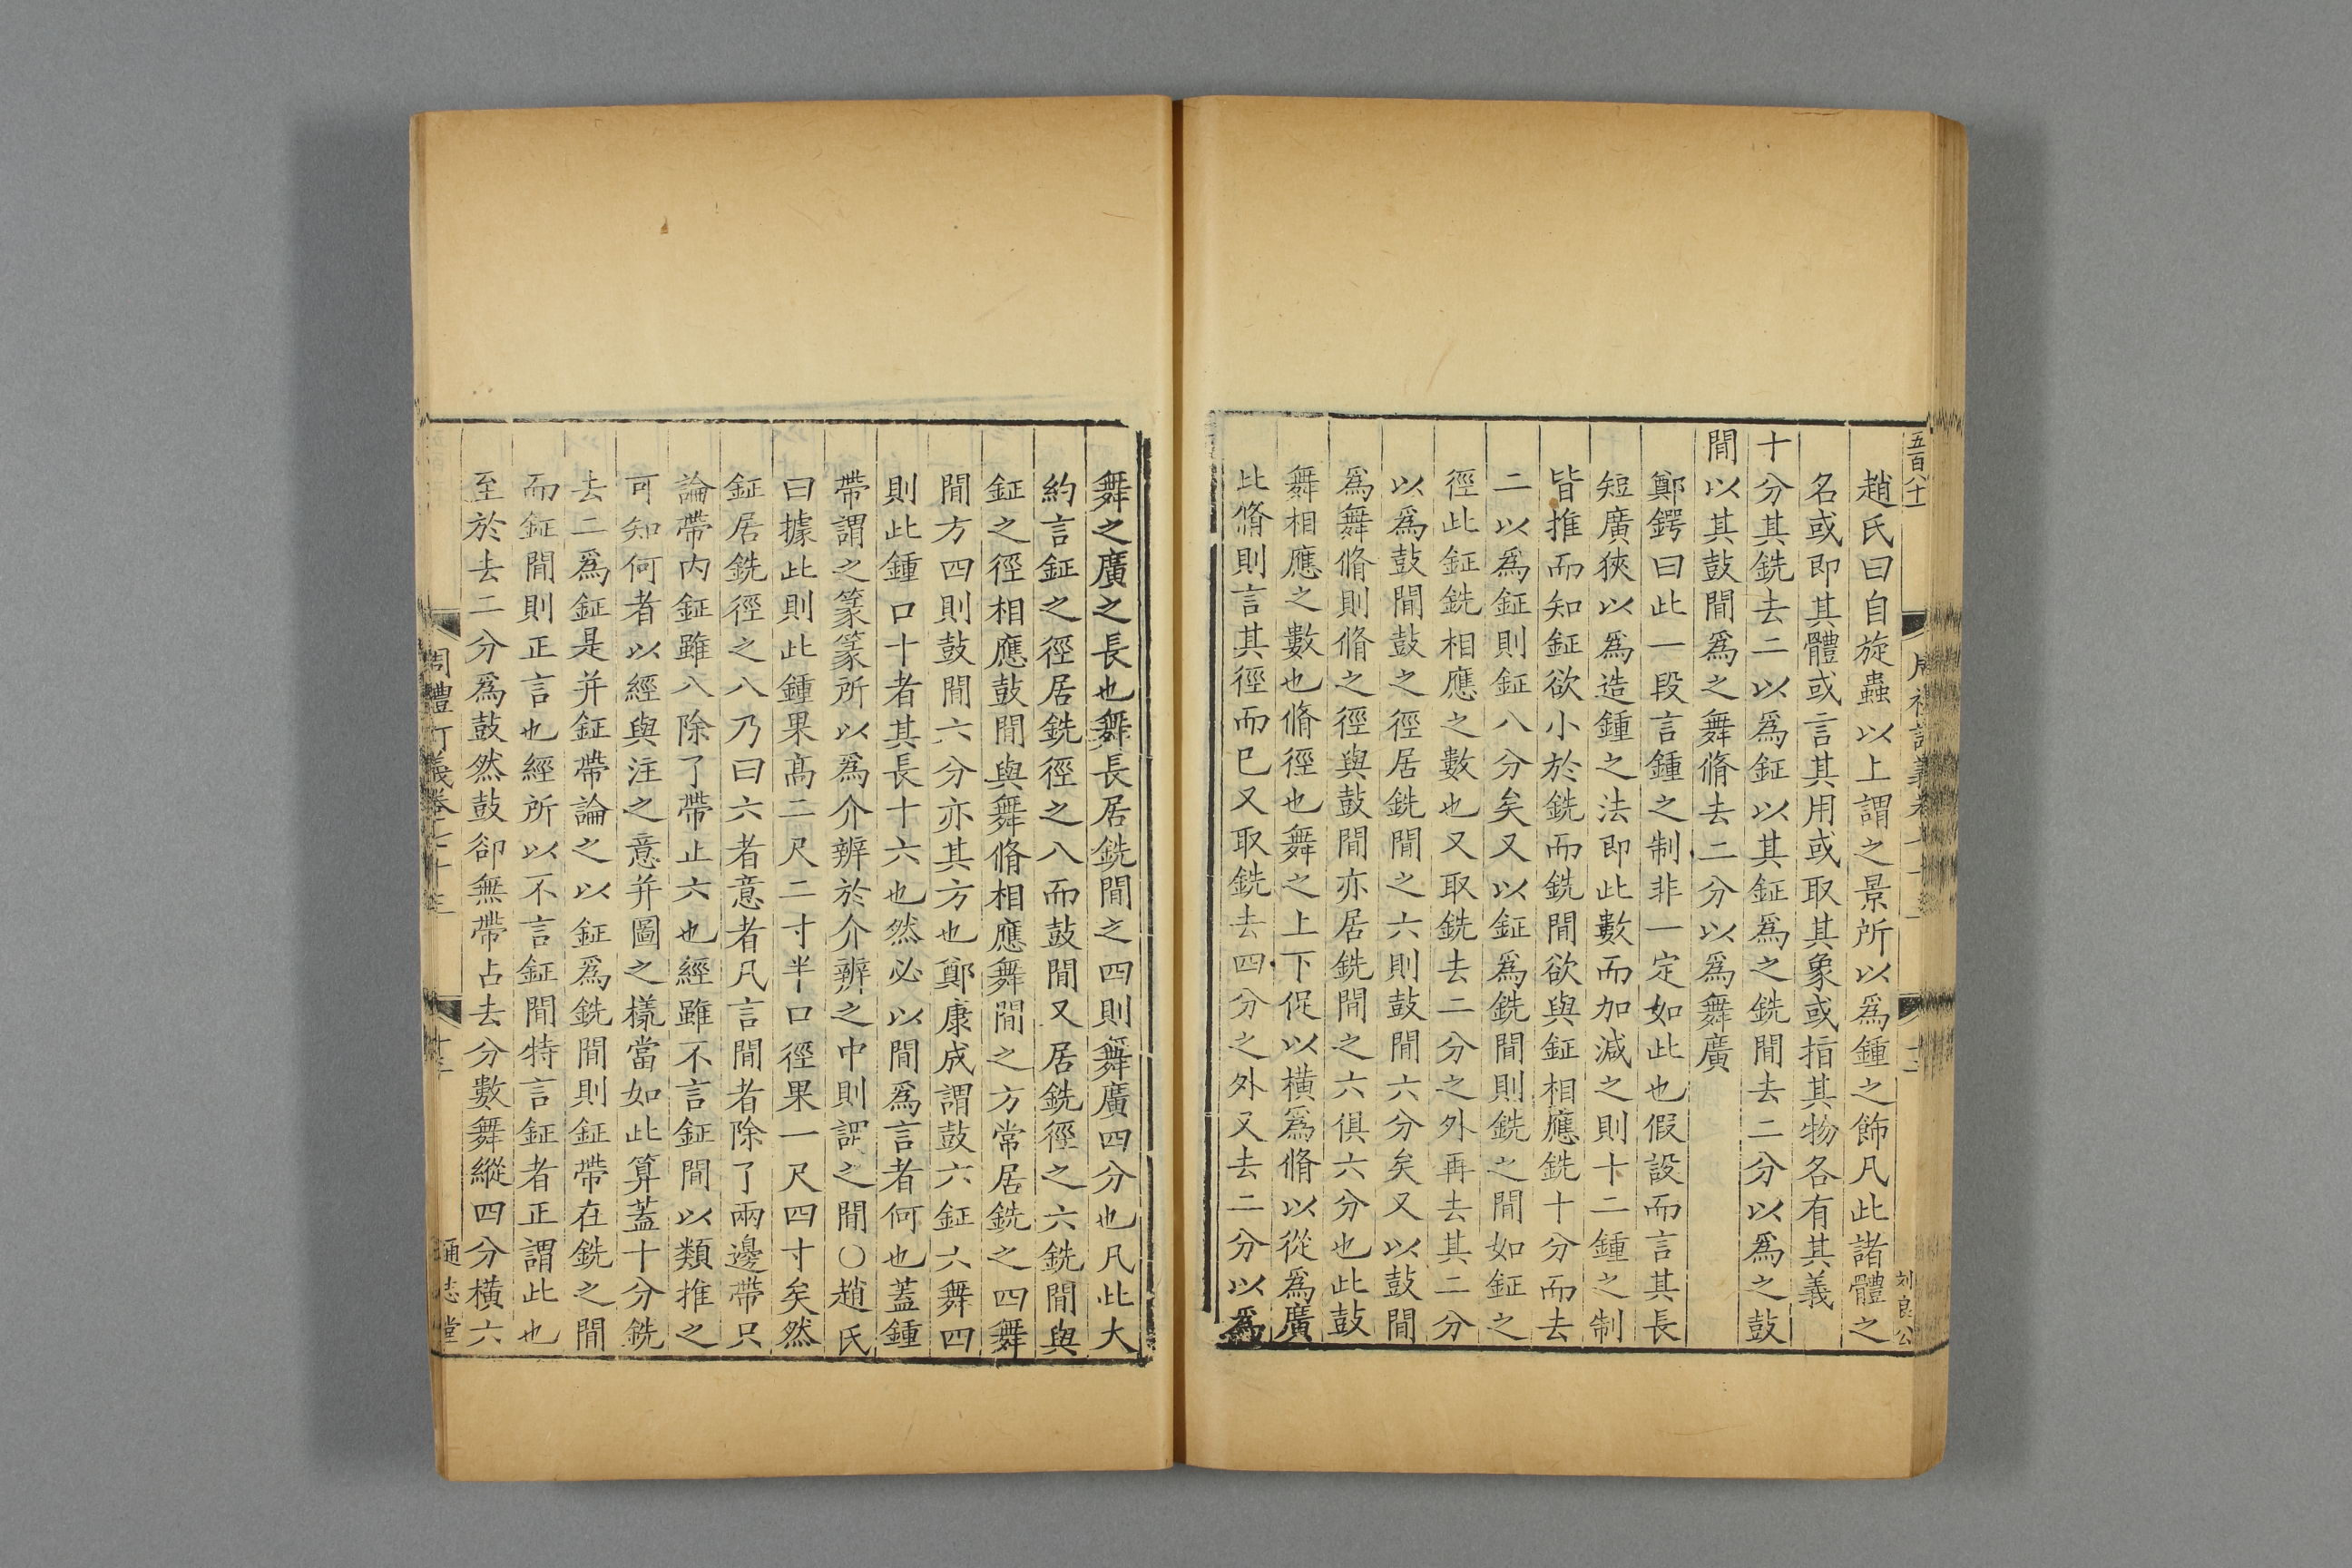 五百八十
刘良公
趙氏曰自旋蟲以上謂之景所以爲鍾之飾凡此諸體之
名或即其體或言其用或取其象或指其物各有其義
十分其銑去二以爲鉦以其鉦爲之銑間去二分以爲之鼓
間以其鼓間爲之舞脩去二分以爲舞廣
鄭鍔曰此一段言鍾之制非一定如此也假設而言其長
短廣狹以爲造鍾之法即此數而加減之則十二鍾之制
皆推而知鉦欲小於銑而銑間欲與鉦相應銑十分而去
二以爲鉦則鉦八分矣又以鉦爲銑間則銑之間如鉦之
徑此鉦銑相應之數也又取銑去二分之外再去其二分
以爲鼓間鼓之徑居銑間之六則鼓間六分矣又以鼓間
爲舞脩則脩之徑與鼓間亦居銑間之六俱六分也此鼓
舞相應之數也脩徑也舞之上下促以橫爲脩以從爲廣
此脩則言其徑而已又取銑去四分之外又去二分以爲
舞之廣之長也舞長居銑間之四則舞廣四分也凡此大
約言鉦之徑居銑徑之八而鼓間又居銑徑之六銑間與
鉦之徑相應鼓間與舞脩相應舞間之方常居銑之四舞
間方四則鼓間六分亦其方也鄭康成謂鼓六鉦六舞四
則此鍾口十者其長十六也然必以間爲言者何也蓋鍾
帶謂之篆篆所以爲介辨於介辨之中則謂之間○趙氏
曰據此則此鍾果高二尺二寸半口徑果一尺四寸矣然
鉦居銑徑之八乃曰六者意者凡言間者除了兩邊帶只
論帶內鉦雖八除了帶止六也經雖不言鉦間以類推之
可知何者以經與注之意并圖之樣當如此算蓋十分銑
去二爲鉦是并鉦帶論之以鉦爲銑間則鉦帶在銑之間
而鉦間則正言也經所以不言鉦間特言鉦者正謂此也
至於去二分爲鼓然鼓卻無帶占去分數舞縱四分橫六
周禮訂義卷七十三
十三
通志堂